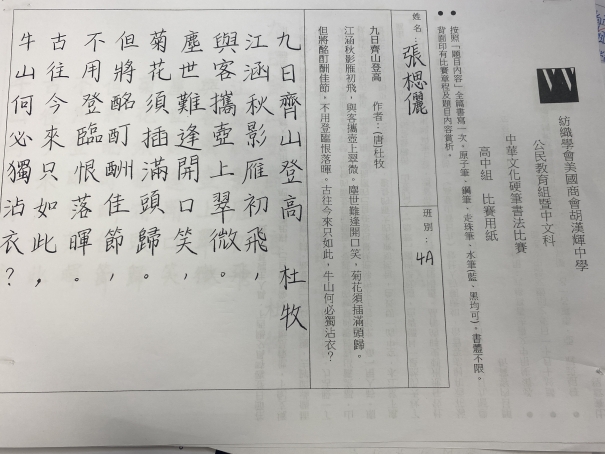 W
紡織學會美國商會胡漢輝中學
公民教育組暨中文科
中華文化硬筆書法比賽
高中組 比賽用紙
● 按照「題目內容」全篇書寫一次，原子筆、鋼筆、走珠筆、水筆(藍、黑均可)，書體不限。
● 背面印有比賽章程及題目內容賞析。
姓名：張楒儷 班別：4A
九日齊山登高 作者：(唐)杜牧
江涵秋影雁初飛，與客攜壺上翠微。塵世難逢開口笑，菊花須插滿頭歸。
但將酩酊酬佳節，不用登臨恨落暉。古往今來只如此，牛山何必獨沾衣？
九日齊山登高 杜牧
江涵秋影雁初飛，
與客攜壺上翠微。
塵世難逢開口笑，
菊花須插滿頭歸。
但將酩酊酬佳節，
不用登臨恨落暉。
古往今來只如此，
牛山何必獨沾衣？